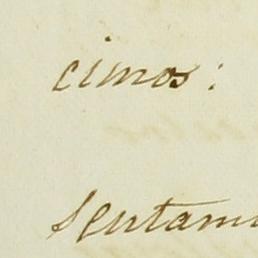 cimos:
sentam